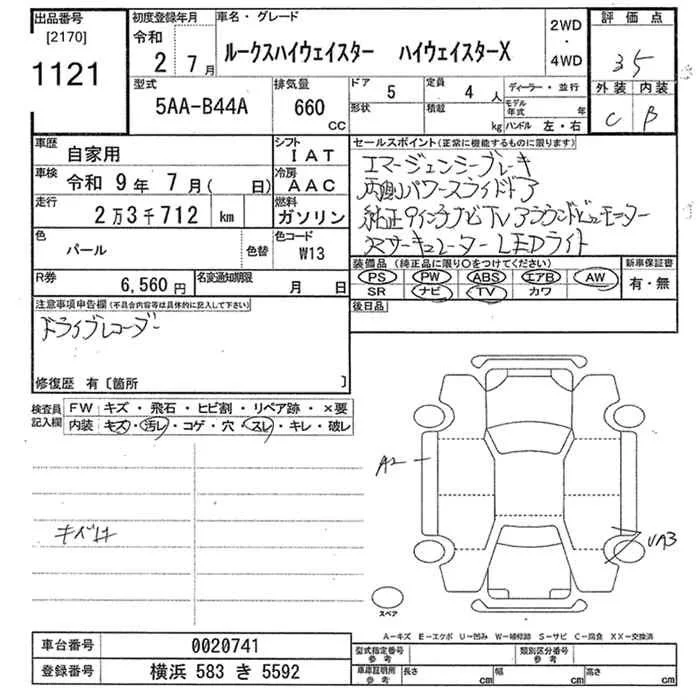 出品番号 [2170] 1121
初度登録年月 令和 2 年 7月
車名・グレード ルークスハイウェイスター ハイウェイスターX
2WD ・ 4WD
評価点 3.5
外装 C 内装 B
型式 5AA-B44A
排気量 660 CC
ドア 5 定員 4 人
形状 積載 kg
ディーラー・並行
モデル年式 年
ハンドル 左・右
車歴 自家用
車検 令和 9年 7月( 日)
走行 2万3千712 km
色 パール 色替
シフト IAT
冷房 AAC
燃料 ガソリン
色コード W13
R券 6,560円
名変通知期限 月 日
セールスポイント(正常に機能するものに限ります)
エマージェンシーブレーキ
両側パワースライドドア
純正9インチナビTVアラウンドビューモニター
サーキュレーター LEDライト
装備品(純正品に限り〇をつけてください)
PS PW ABS エアB AW
SR ナビ TV カワ
新車保証書 有・無
後日品
注意事項申告欄(不具合内容等は具体的に記入して下さい)
ドライブレコーダー
修復歴 有〔箇所 〕
検査員記入欄
FW キズ・飛石・ヒビ割・リペア跡・×要
内装 キズ・汚レ・コゲ・穴・スレ・キレ・破レ
A2
UA3
スペア
A-キズ E-エクボ U-凹み W-補修跡 S-サビ C-腐食 XX-交換済
車台番号 0020741
登録番号 横浜 583 き 5592
型式指定番号 参考
類別区分番号 参考
車庫証明所 参考 長さ cm 幅 cm 高さ cm